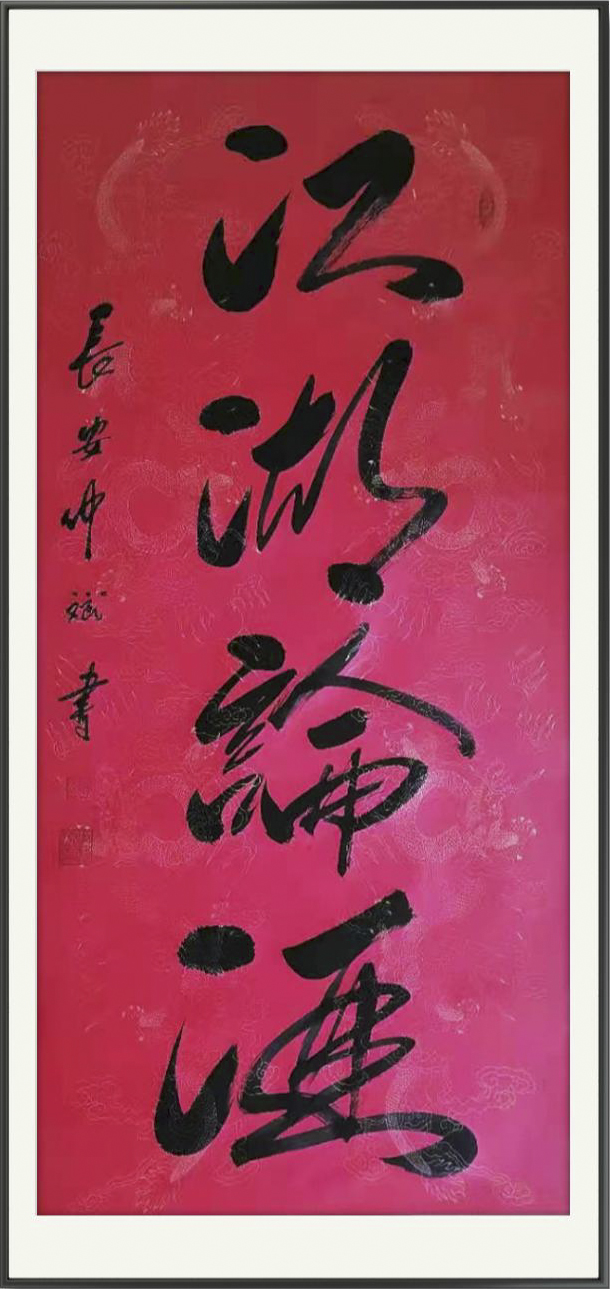 江湖論酒
長安仲斌書